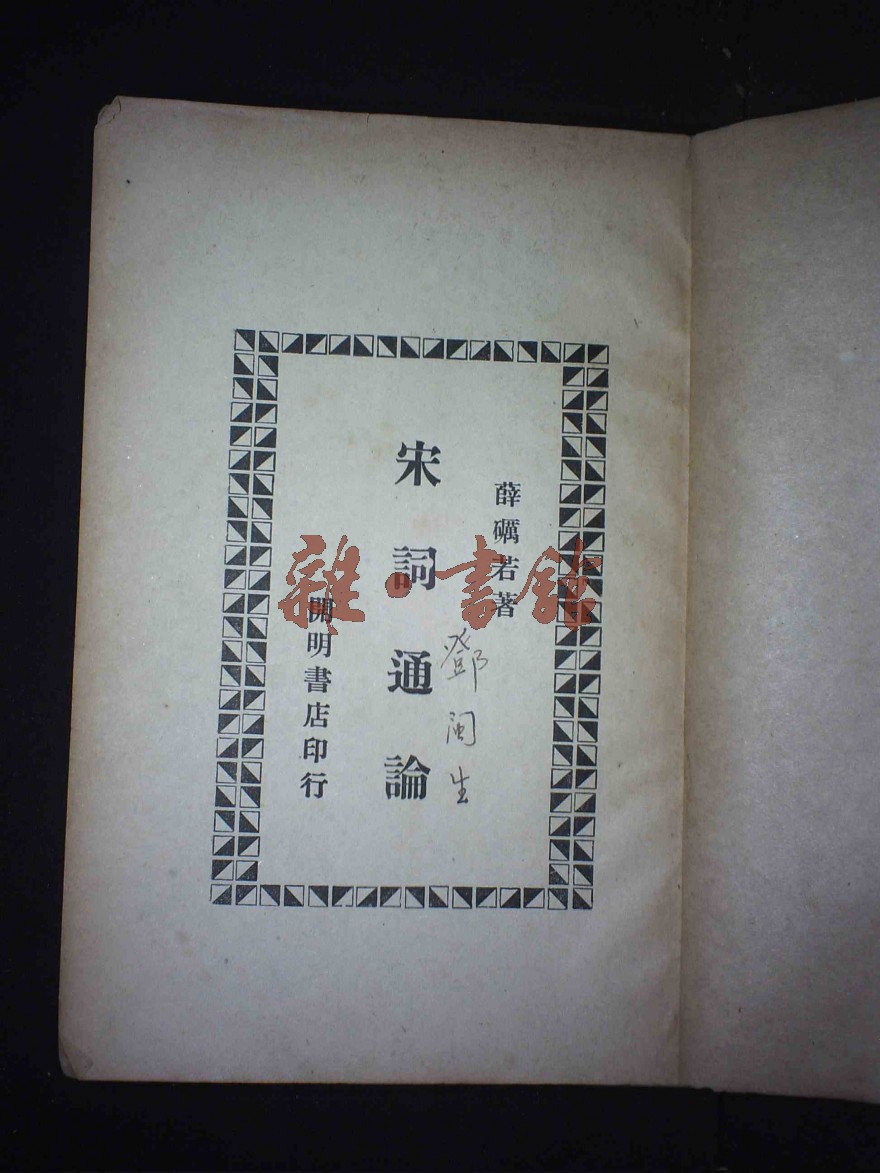 薛礪若著
宋詞通論
鄧闽生
開明書店印行
雜·書館